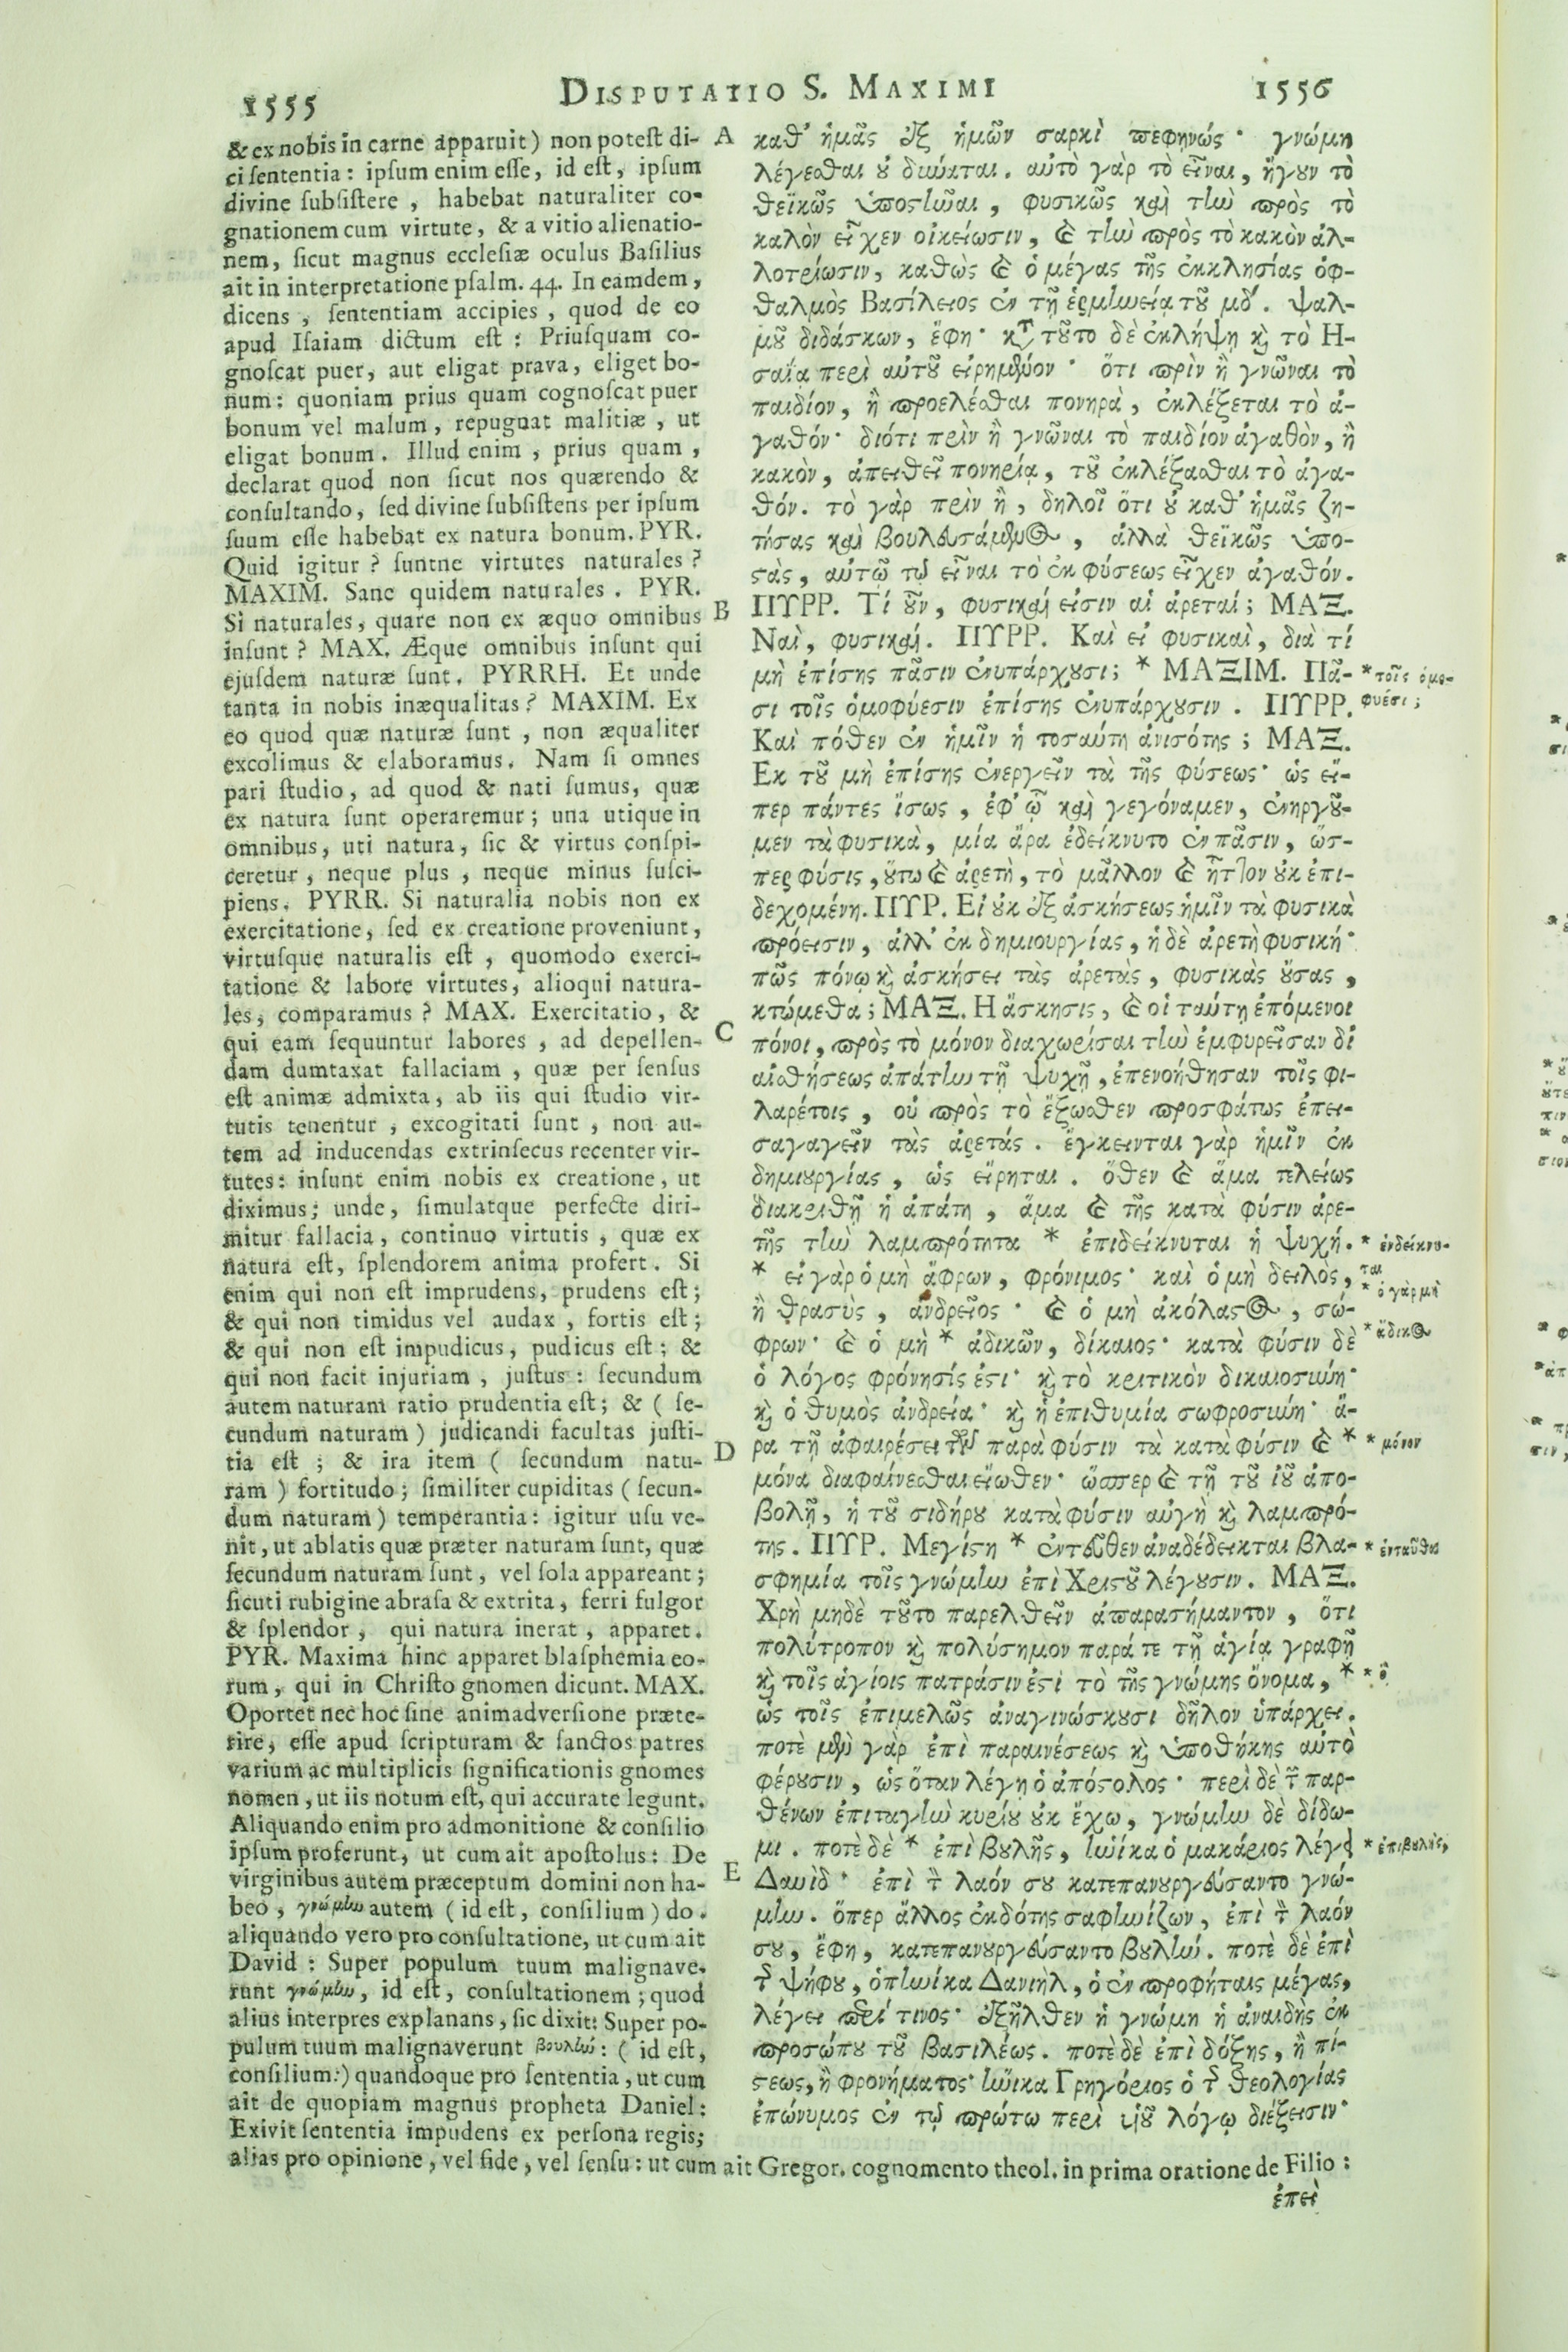 1555
DISPUTATIO S. MAXIMI
1556
& ex nobis in carne apparuit) non poteſt di-
ci ſententia: ipſum enim eſſe, id eſt, ipſum
divine ſubſiſtere, habebat naturaliter co-
gnationem cum virtute, & a vitio alienatio-
nem, ſicut magnus eccleſiæ oculus Baſilius
ait in interpretatione pſalm. 44. In eamdem,
dicens, ſententiam accipies, quod de eo
apud Iſaiam dictum eſt: Priuſquam co-
gnoſcat puer, aut eligat prava, eliget bo-
num: quoniam prius quam cognoſcat puer
bonum vel malum, repugnat malitiæ, ut
eligat bonum. Illud enim, prius quam,
declarat quod non ſicut nos quærendo &
conſultando, ſed divine ſubſiſtens per ipſum
ſuum eſſe habebat ex natura bonum. PYR.
Quid igitur? ſuntne virtutes naturales?
MAXIM. Sane quidem naturales. PYR.
Si naturales, quare non ex æquo omnibus
inſunt? MAX. Æque omnibus inſunt qui
ejuſdem naturæ ſunt. PYRRH. Et unde
tanta in nobis inæqualitas? MAXIM. Ex
eo quod quæ naturæ ſunt, non æqualiter
excolimus & elaboramus. Nam ſi omnes
pari ſtudio, ad quod & nati ſumus, quæ
ex natura ſunt operaremur; una utique in
omnibus, uti natura, ſic & virtus conſpi-
ceretur, neque plus, neque minus ſuſci-
piens. PYRR. Si naturalia nobis non ex
exercitatione, ſed ex creatione proveniunt,
virtuſque naturalis eſt, quomodo exerci-
tatione & labore virtutes, alioqui natura-
les, comparamus? MAX. Exercitatio, &
qui eam ſequuntur labores, ad depellen-
dam dumtaxat fallaciam, quæ per ſenſus
eſt animæ admixta, ab iis qui ſtudio vir-
tutis tenentur, excogitati ſunt, non au-
tem ad inducendas extrinſecus recenter vir-
tutes: inſunt enim nobis ex creatione, ut
diximus; unde, ſimulatque perfecte diri-
mitur fallacia, continuo virtutis, quæ ex
natura eſt, ſplendorem anima profert. Si
enim qui non eſt imprudens, prudens eſt;
& qui non timidus vel audax, fortis eſt;
& qui non eſt impudicus, pudicus eſt; &
qui non facit injuriam, juſtus: ſecundum
autem naturam ratio prudentia eſt; & (ſe-
cundum naturam) judicandi facultas juſti-
tia eſt; & ira item (ſecundum natu-
ram) fortitudo; ſimiliter cupiditas (ſecun-
dum naturam) temperantia: igitur uſu ve-
nit, ut ablatis quæ præter naturam ſunt, quæ
ſecundum naturam ſunt, vel ſola appareant;
ſicuti rubigine abraſa & extrita, ferri fulgor
& ſplendor, qui natura inerat, apparet.
PYR. Maxima hinc apparet blaſphemia eo-
rum, qui in Chriſto gnomen dicunt. MAX.
Oportet nec hoc ſine animadverſione præte-
rire, eſſe apud ſcripturam & ſanctos patres
varium ac multiplicis ſignificationis gnomes
nomen, ut iis notum eſt, qui accurate legunt.
Aliquando enim pro admonitione & conſilio
ipſum proferunt, ut cum ait apoſtolus: De
virginibus autem præceptum domini non ha-
beo, γνώμlω autem (id eſt, conſilium) do.
aliquando vero pro conſultatione, ut cum ait
David: Super populum tuum malignave.
runt γνώμlω, id eſt, conſultationem; quod
alius interpres explanans, ſic dixit: Super po-
pulum tuum malignaverunt βουλlώ: (id eſt,
conſilium:) quandoque pro ſententia, ut cum
ait de quopiam magnus propheta Daniel:
Exivit ſententia impudens ex perſona regis;
alias pro opinione, vel fide, vel ſenſu: ut cum ait Gregor. cognomento theol. in prima oratione de Filio:
A
B
C
D
E
καθ' ἡμᾶς ἐξ ἡμῶν σαρκὶ πεφηνώς· γνώμη
λέγεσθαι ȣ δύναται. αὐτὸ γὰρ τὸ εἶναι, ἤγȣν τὸ
θεϊκῶς ὑποστlῶαι, φυσικῶς καὶ τlὼ πρὸς τὸ
καλὸν εἶχεν οἰκείωσιν, & τlὼ πρὸς τὸ κακὸν ἀλ-
λοτρίωσιν, καθὼς & ὁ μέγας τῆς ἐκκλησίας ὀφ-
θαλμὸς Βασίλειος ἐν τῇ ἑρμlωείᾳ τȣ͂ μδ'. ψαλ-
μȣ͂ διδάσκων, ἔφη· κτ τȣ͂το δὲ ἐκλήψῃ κὶ τὸ Η-
σαΐᾳ περὶ αὐτȣ͂ εἰρημένον· ὅτι πρὶν ἢ γνῶναι τὸ
παιδίον, ἢ προελέσθαι πονηρὰ, ἐκλέξεται τὸ ἀ-
γαθόν· διότι πρὶν ἢ γνῶναι τὸ παιδίον ἀγαθὸν, ἢ
κακὸν, ἀπειθεῖ πονηρίᾳ, τȣ͂ ἐκλέξασθαι τὸ ἀγα-
θόν. τὸ γὰρ πρὶν ἢ, δηλοῖ ὅτι ȣ καθ' ἡμᾶς ζη-
τήσας καὶ βουλευσάμενος, ἀλλὰ θεϊκῶς ὑπο-
στὰς, αὐτῷ τῷ εἶναι τὸ ἐκ φύσεως εἶχεν ἀγαθόν.
ΠΥΡΡ. Τί ȣ͂ν, φυσικαί εἰσιν αἱ ἀρεταί; ΜΑΞ.
Ναὶ, φυσικαί. ΠΥΡΡ. Καὶ εἰ φυσικαὶ, διὰ τί
μὴ ἐπίσης πᾶσιν ἐνυπάρχȣσι; * ΜΑΞΙΜ. Πᾶ-
σι τοῖς ὁμοφύεσιν ἐπίσης ἐνυπάρχȣσιν. ΠΥΡΡ.
Καὶ πόθεν ἐν ἡμῖν ἡ τοσαύτη ἀνισότης; ΜΑΞ.
Εκ τȣ͂ μὴ ἐπίσης ἐνεργεῖν τὰ τῆς φύσεως· ὡς εἴ-
περ πάντες ἴσως, ἐφ' ᾧ καὶ γεγόναμεν, ἐνηργȣ͂-
μεν τὰ φυσικὰ, μία ἄρα ἐδείκνυτο ἐν πᾶσιν, ὥσ-
περ φύσις, ȣτω & ἀρετὴ, τὸ μᾶλλον & ἧττον ȣκ ἐπι-
δεχομένη. ΠΥΡ. Εἰ ȣκ ἐξ ἀσκήσεως ἡμῖν τὰ φυσικὰ
πρόεισιν, ἀλλ' ἐκ δημιουργίας, ἡ δὲ ἀρετὴ φυσική·
πῶς πόνῳ κὶ ἀσκήσει τὰς ἀρετὰς, φυσικὰς ȣσας,
κτώμεθα; ΜΑΞ. Η ἄσκησις, & οἱ ταύτῃ ἑπόμενοι
πόνοι, πρὸς τὸ μόνον διαχωρίσαι τlὼ ἐμφυρεῖσαν δι'
αἰσθήσεως ἀπάτlω τῇ ψυχῇ, ἐπενοήθησαν τοῖς φι-
λαρέτοις, οὐ πρὸς τὸ ἔξωθεν προσφάτως ἐπει-
σαγαγεῖν τὰς ἀρετάς. ἔγκεινται γὰρ ἡμῖν ἐκ
δημιȣργίας, ὡς εἴρηται. ὅθεν & ἅμα τελείως
διακριθῇ ἡ ἀπάτη, ἅμα & τῆς κατὰ φύσιν ἀρε-
τῆς τlὼ λαμπρότητα * ἐπιδείκνυται ἡ ψυχή.
* εἰ γὰρ ὁ μὴ ἄφρων, φρόνιμος· καὶ ὁ μὴ δειλὸς,
ἢ θρασὺς, ἀνδρεῖος· & ὁ μὴ ἀκόλαστος, σώ-
φρων· & ὁ μὴ * ἀδικῶν, δίκαιος· κατὰ φύσιν δὲ
ὁ λόγος φρόνησίς ἐστι· κὶ τὸ κριτικὸν δικαιοσύνη·
κὶ ὁ θυμὸς ἀνδρεία· κὶ ἡ ἐπιθυμία σωφροσύνη· ἄ-
ρα τῇ ἀφαιρέσει τῶν παρὰ φύσιν τὰ κατὰ φύσιν & *
μόνα διαφαίνεσθαι εἴωθεν· ὥσπερ & τῇ τȣ͂ ἰȣ͂ ἀπο-
βολῇ, ἡ τȣ͂ σιδήρȣ κατὰ φύσιν αὐγὴ κὶ λαμπρό-
της. ΠΥΡ. Μεγίστη * ἐντεῦθεν ἀναδέδεικται βλα-
σφημία τοῖς γνώμlω ἐπὶ Χριστȣ͂ λέγȣσιν. ΜΑΞ.
Χρὴ μηδὲ τȣ͂το παρελθεῖν ἀπαρασήμαντον, ὅτι
πολύτροπον κὶ πολύσημον παρά τε τῇ ἁγίᾳ γραφῇ
κὶ τοῖς ἁγίοις πατράσιν ἐστὶ τὸ τῆς γνώμης ὄνομα, *
ὡς τοῖς ἐπιμελῶς ἀναγινώσκȣσι δῆλον ὑπάρχει.
ποτὲ μὲν γὰρ ἐπὶ παραινέσεως κὶ ὑποθήκης αὐτὸ
φέρȣσιν, ὡς ὅταν λέγῃ ὁ ἀπόστολος· περὶ δὲ τῶν παρ-
θένων ἐπιταγlὼ κυρίȣ ȣκ ἔχω, γνώμlω δὲ δίδω-
μι. ποτὲ δὲ * ἐπὶ βȣλῆς, ἡνίκα ὁ μακάριος λέγει
Δαυὶδ· ἐπὶ τὸν λαόν σȣ κατεπανȣργεύσαντο γνώ-
μlω. ὅπερ ἄλλος ἐκδότης σαφlωίζων, ἐπὶ τὸν λαόν
σȣ, ἔφη, κατεπανȣργεύσαντο βȣλlώ. ποτὲ δὲ ἐπὶ
τῆς ψήφȣ, ὁπlωίκα Δανιὴλ, ὁ ἐν προφήταις μέγας,
λέγει περί τινος· ἐξῆλθεν ἡ γνώμη ἡ ἀναιδὴς ἐκ
προσώπȣ τȣ͂ βασιλέως. ποτὲ δὲ ἐπὶ δόξης, ἢ πί-
στεως, ἢ φρονήματος· ἡνίκα Γρηγόριος ὁ τῆς θεολογίας
ἐπώνυμος ἐν τῷ πρώτῳ περὶ υἱȣ͂ λόγῳ διέξεισιν·
ἐπεὶ
* τοῖς ὁμο-
φυέσι;
* ἐνδείκνυ-
ται
* ὁ γὰρ μὴ
* ἄδικος
* μόνον
* ἐνταῦθα
* ὃ
* ἐπιβȣλῆς,